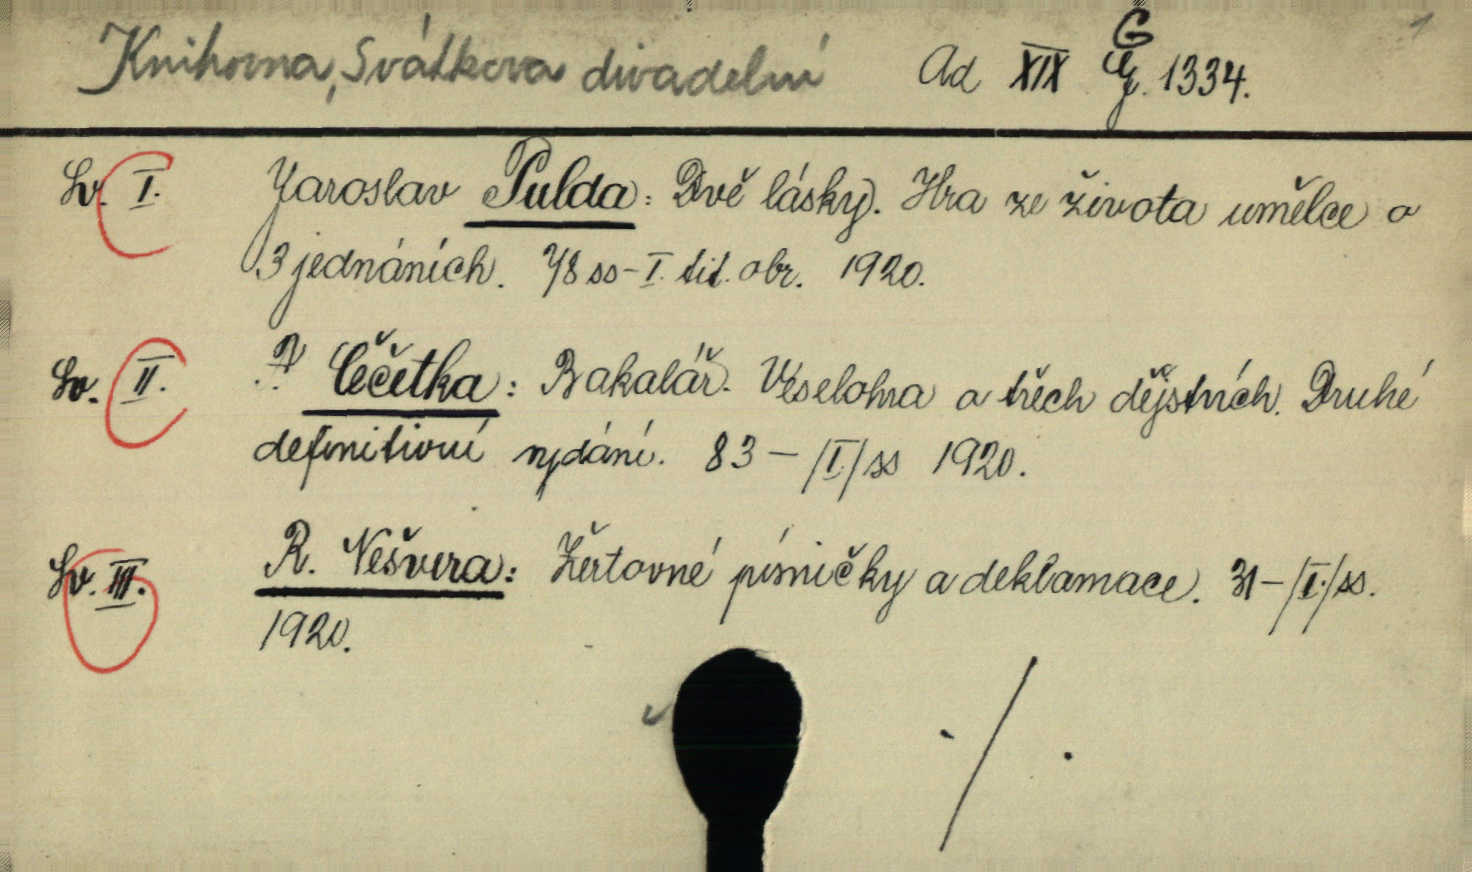 Knihovna, Svátkova divadelní Ad XIX G 1334. 1
Sv. I. Jaroslav Pulda: Dvě lásky. Hra ze života umělce o
3 jednáních. 78 ss-I. tit. obr. 1920.
Sv. II. Čečetka: Bakalář. Veselohra o třech dějstvích. Druhé
definitivní vydání. 83-/I/ss 1920.
Sv. III. R. Nešvera: Žertovné písničky a deklamace. 31-/I./ss.
1920.
./.